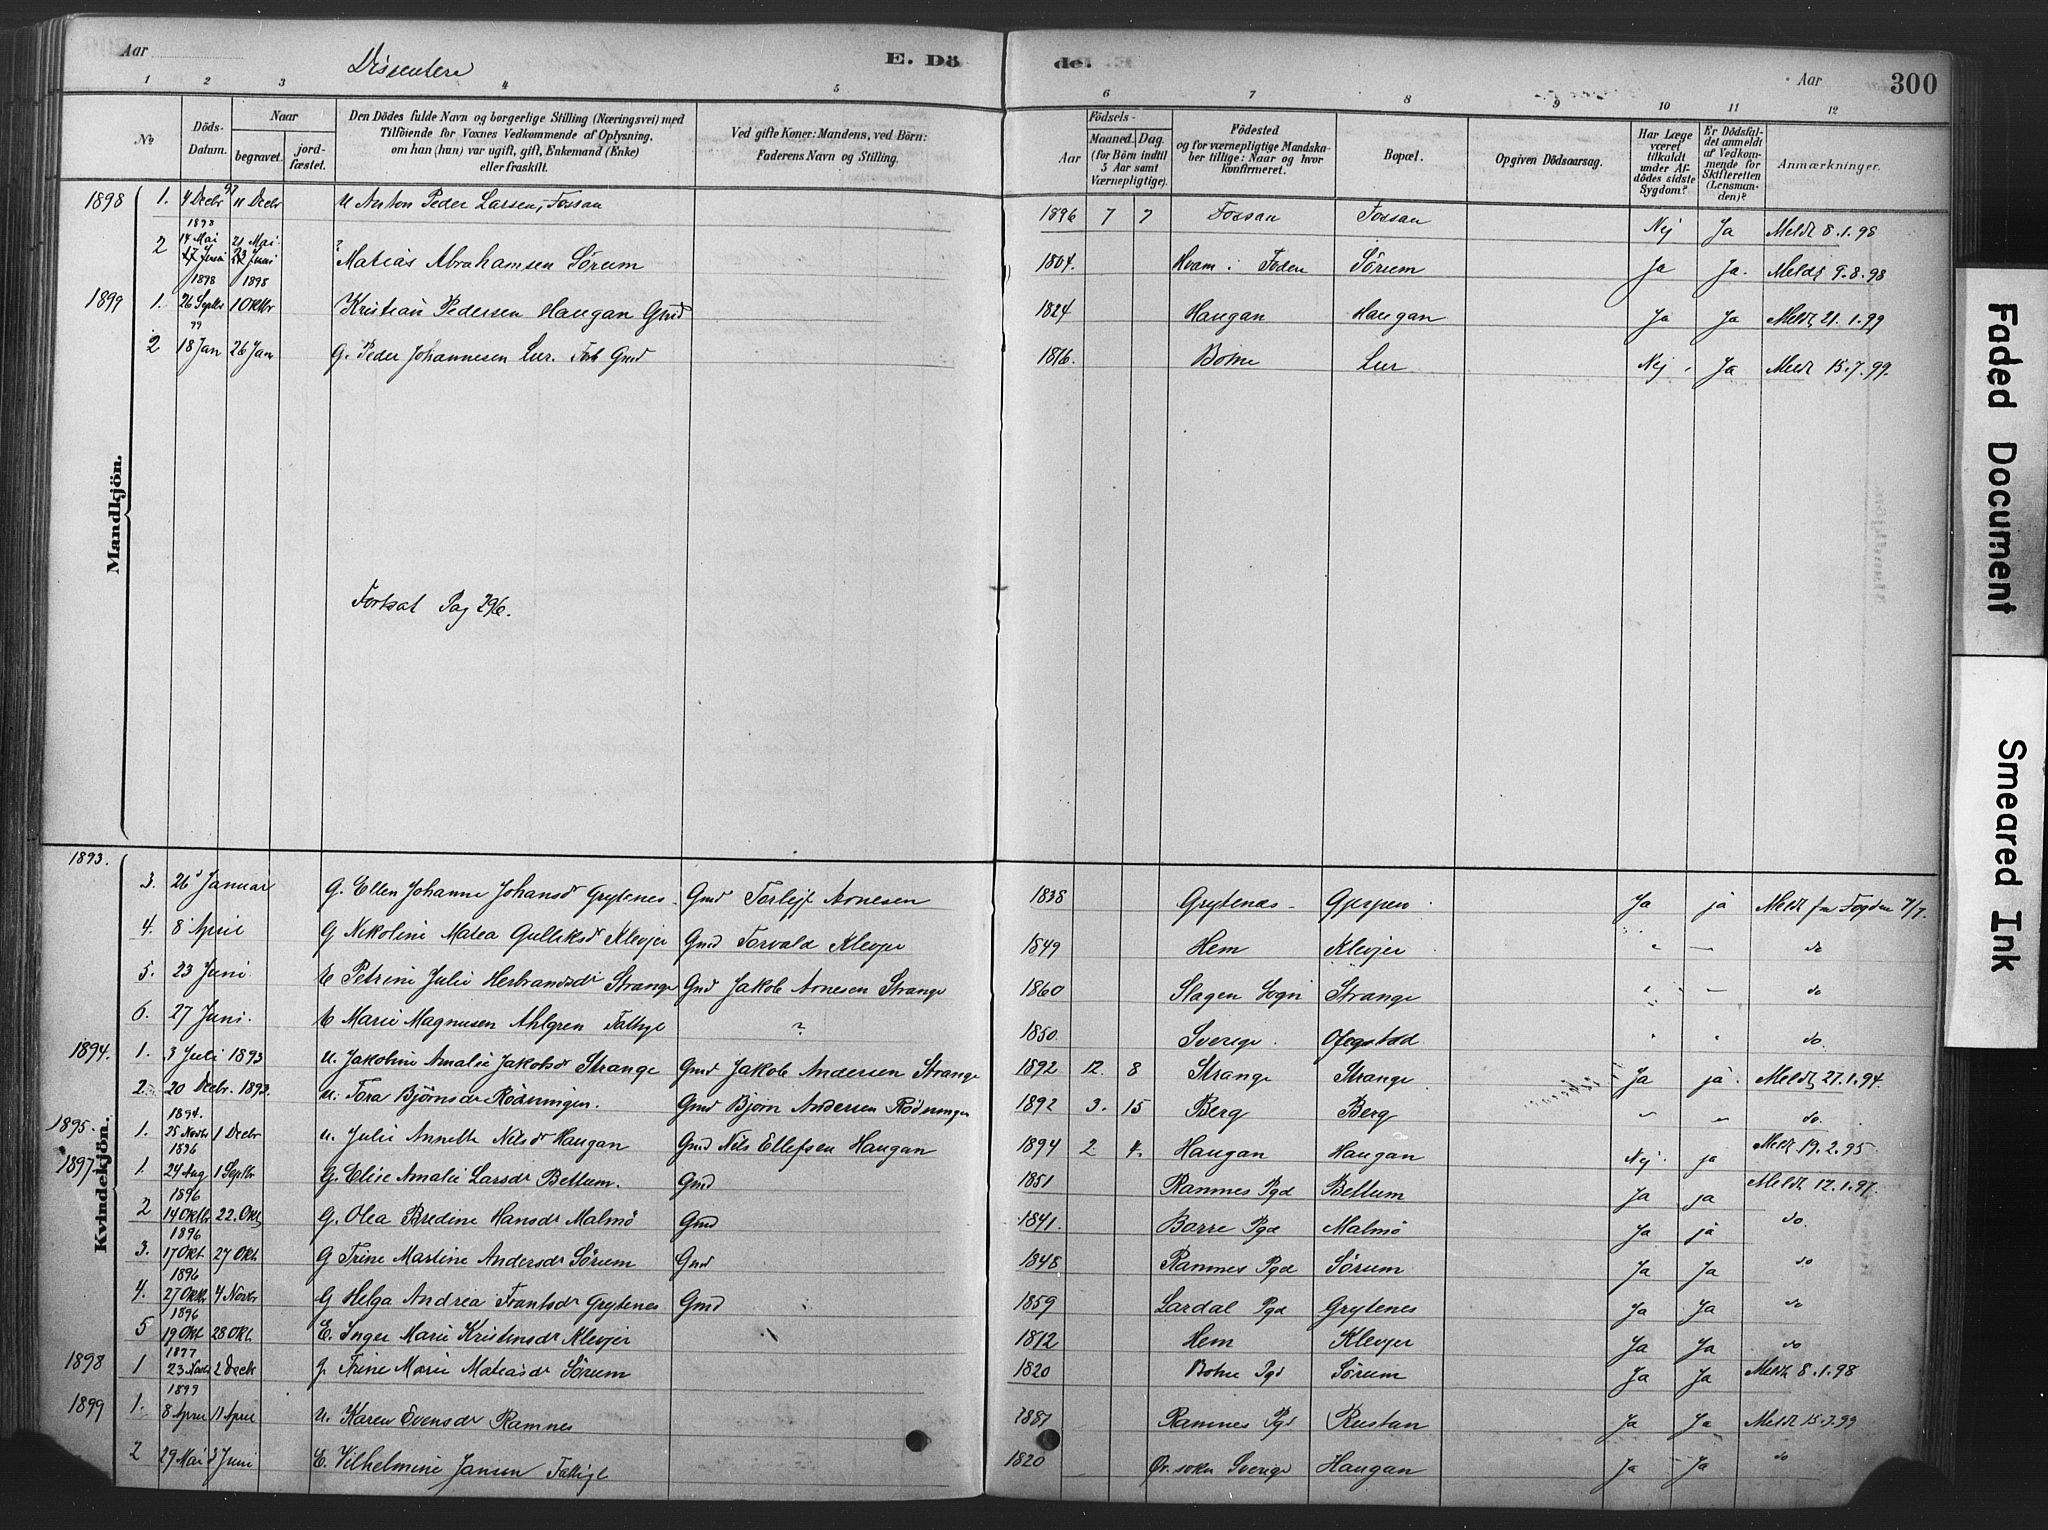 Aar
Dissentere
E. Dö
de.
Aar
300
1 2 3 4 5 6 7 8 9 10 11 12
No
Döds-Datum.
Naar
begravet.
jord-fæstet.
Den Dödes fulde Navn og borgerlige Stilling (Næringsvei) med
Tilföiende for Voxnes Vedkommende af Oplysning,
om han (hun) var ugift, gift, Enkemand (Enke)
eller fraskilt.
Ved gifte Koner: Mandens, ved Börn:
Faderens Navn og Stilling.
Födsels-
Aar
Maaned. Dag.
(for Börn indtil
5 Aar samt
Værnepligtige).
Födested
og for værnepligtige Mandska-
ber tillige: Naar og hvor
konfirmeret.
Bopæl.
Opgiven Dödsaarsag.
Har Læge
været
tilkaldt
under Af-
dödes sidste
Sygdom?
Er Dödsfal-
det anmeldt
af Vedkom-
mende for
Skifteretten
(Lensman-
den)?
Anmærkninger.
Mandkjön.
1898 1. 4 Decbr 97 11 Decbr U Anton Peder Larsen, Fossan 1896 7 7 Fossan Fossan Nej Ja Meldt 8.1.98
2 1898 14 Mai 17 Juni 21 Mai 23 Juni ? Matias Abrahamsen Sörum 1804. Hvam i Foden Sörum Ja Ja. Meldt 9.8.98
1899 1. 1898 26 Septbr 1898 1 Oktbr Kristian Pedersen Haugan Gmd 1824 Haugan Haugan Ja Ja Meldt 21.1.99
2 99 18 Jan 26 Jan G. Peder Johannesen Lur. Forh Gmd 1816. Botne Lur Nej Ja Meldt 15.7.99.
Fortsat Pag 296.
Kvindekjön.
1893. 3. 26 Januar G. Ellen Johanne Johansdr Grytenes Gmd Torleif Arnesen 1838 Grytenes Gjerpen Ja ja Meldt fra Fogden 7/7.
4. 8 April G Nikoline Matea Gulliksdr Klevjer Gmd Torvald Klevjer 1849 Hem Klevjer " — do
5. 23 Juni. E Petrine Julie Herbrandsdr Strange Gmd Jakob Arnesen Strange 1860 Slagen Sogn Strange " — do
6. 27 Juni. E Marie Magnusen Ahlgren Fattige ? 1850 Sverige. " " do.
1894. 1. 3 Juli 1893 U. Jakobine Amalie Jakobsdr Strange Gmd Jakob Andersen Strange 1892 12. 8 Strange Strange Ja ja Meldt 27.1.94.
2. 20 Decbr. 1893. U. Tora Björnsdr Rödningen. Gmd Björn Andersen Rödningen 1892 3. 15 Berg Berg " " do.
1895. 1. 1894. 25 Novbr 1 Decbr U. Julie Annette Nilsdr Haugan Gmd Nils Ellefsen Haugan 1894 2 4. Haugan Haugan Nej. ja Meldt 19.2.95
1897 1. 1896 24 Aug 1 Septbr G. Elise Amalie Larsdr Bettum. Gmd 1851 Ramnes Pgd Bettum Ja ja Meldt 12.1.97.
2 1896 14 Oktbr 22. Okt G. Olea Bredine Hansdr Malmö Gmd 1841. Borre Pgd Malmö Ja ja do
3. 1896 17 Okt 27 Okt G Trine Martine Andersdr Sörum Gmd 1848 Ramnes Pgd Sörum Ja Ja do
4. 1896 27 Oktbr 4 Novbr G Helga Andrea Frantsdr Grytenes Gmd 1859 Lardal Pgd Grytenes Ja Ja do
5 1896 19 Okt 28 Okt. E. Inger Marie Kristensdr Klevjer 1812 Hem Klevjer Ja Ja do
1898 1 1897 23 Novbr 2 Decbr G. Trine Marie Matiasdr Sörum 1820 Botne Pgd Sörum Ja Ja Meldt 8.1.98
1899 1. 1899 8 April 11 April U. Karen Evensdr Ramnes 1887 Ramnes Pgd Rustan Ja Ja Meldt 15.7.99
2 29 Mai 3 Juni E. Vilhelmine Jansen Fattige 1820 Sverige Haugan Ja Ja do
Faded Document
Smeared Ink